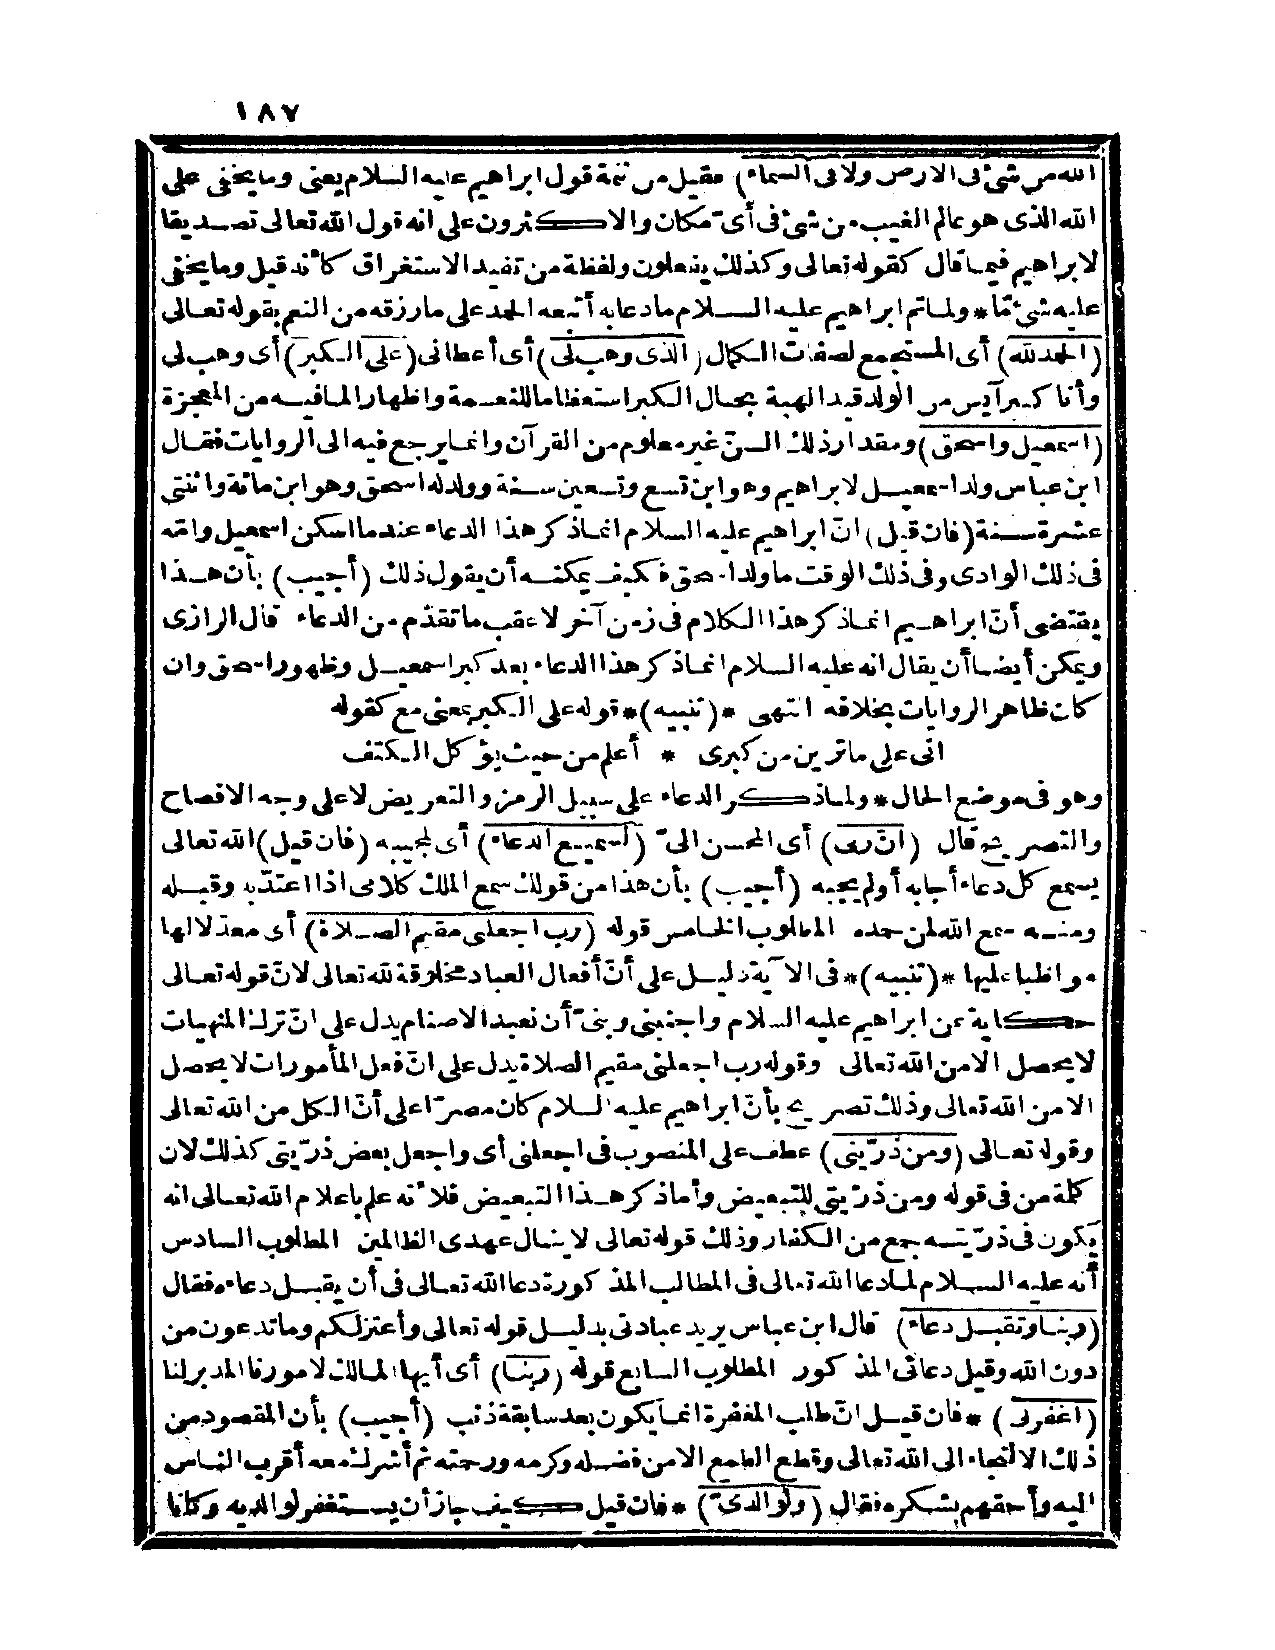 ١٨٧
الله من شئ فى الارض ولا فى السماء) فقيل من تتمة قول ابراهيم عليه السلام يعنى وما يخفى على
الله الذى هو عالم الغيب من شئ فى أىّ مكان والاكثرون على انه قول الله تعالى تصديقا
لابراهيم فيما قال كقوله تعالى وكذلك يفعلون ولفظة من تفيد الاستغراق كأنه قيل وما يخفى
عليه شئ مّا * ولما تم ابراهيم عليه السلام ما دعا به أتبعه الحمد على ما رزقه من النعم بقوله تعالى
(الحمد لله) أى المستجمع لصفات الكمال (الذى وهب لى) أى أعطانى (على الكبر) أى وهب لى
وأنا كبير آيس من الولد قيد الهبة بحال الكبر استعظاما للنعمة واظهارا لما فيه من المعجزة
(اسمعيل واسحق) ومقدار ذلك السنّ غير معلوم من القرآن وانما يرجع فيه الى الروايات فقال
ابن عباس ولد اسمعيل لابراهيم وهو ابن تسع وتسعين سنة وولد له اسحق وهو ابن مائة واثنتى
عشرة سنة (فان قيل) انّ ابراهيم عليه السلام انما ذكر هذا الدعاء عندما اسكن اسمعيل وامّه
فى ذلك الوادى وفى ذلك الوقت ما ولد اسحق فكيف يمكنه أن يقول ذلك (أجيب) بأن هذا
يقتضى أنّ ابراهيم انما ذكر هذا الكلام فى زمن آخر لا عقب ما تقدّم من الدعاء قال الرازى
ويمكن أيضا أن يقال انه عليه السلام انما ذكر هذا الدعاء بعد كبر اسمعيل وظهور اسحق وان
كان ظاهر الروايات بخلافه انتهى * (تنبيه) * قوله على الكبر بمعنى مع كقوله
انى على ما ترين من كبرى * أعلم من حيث يؤكل الكتف
وهو فى موضع الحال * ولما ذكر الدعاء على سبيل الرمز والتعريض لا على وجه الافصاح
والتصريح قال (انّ ربى) أى المحسن الىّ (لسميع الدعاء) أى لمجيبه (فان قيل) الله تعالى
يسمع كل دعاء أجابه أو لم يجبه (أجيب) بأن هذا من قولك سمع الملك كلامى اذا اعتدّ به وقبله
ومنه سمع الله لمن حمده المطلوب الخامس قوله (رب اجعلنى مقيم الصلاة) أى معدّلا لها
مواظبا عليها * (تنبيه) * فى الآية دليل على أنّ أفعال العباد مخلوقة لله تعالى لانّ قوله تعالى
حكاية عن ابراهيم عليه السلام واجنبنى وبنىّ أن نعبد الاصنام يدل على انّ ترك المنهيات
لا يحصل الا من الله تعالى وقوله رب اجعلنى مقيم الصلاة يدل على انّ فعل المأمورات لا يحصل
الا من الله تعالى وذلك تصريح بأنّ ابراهيم عليه السلام كان مصرّا على أنّ الكل من الله تعالى
وقوله تعالى (ومن ذرّيتى) عطف على المنصوب فى اجعلنى أى واجعل بعض ذرّيتى كذلك لان
كلة من فى قوله ومن ذرّيتى للتبعيض وأما ذكر هذا التبعيض فلانه علم باعلام الله تعالى انه
يكون فى ذرّيته جمع من الكفار وذلك قوله تعالى لا ينال عهدى الظالمين المطلوب السادس
أنه عليه السلام لما دعا الله تعالى فى المطالب المذكورة دعا الله تعالى فى أن يقبل دعاءه فقال
(ربنا وتقبل دعاء) قال ابن عباس يريد عبادتى بدليل قوله تعالى وأعتزلكم وما تدعون من
دون الله وقيل دعائى المذكور المطلوب السابع قوله (ربنا) أى أيها المالك لامورنا المدبر لنا
(اغفر لى) * فان قيل انّ طلب المغفرة انما يكون بعد سابقة ذنب (أجيب) بأن المقصود من
ذلك الالتجاء الى الله تعالى وقطع الطمع الا من فضله وكرمه ورحمته ثم أشرك معه أقرب الناس
اليه وأحقهم بشكره فقال (ولوالدىّ) * فان قيل كيف جاز أن يستغفر لوالديه وكانا